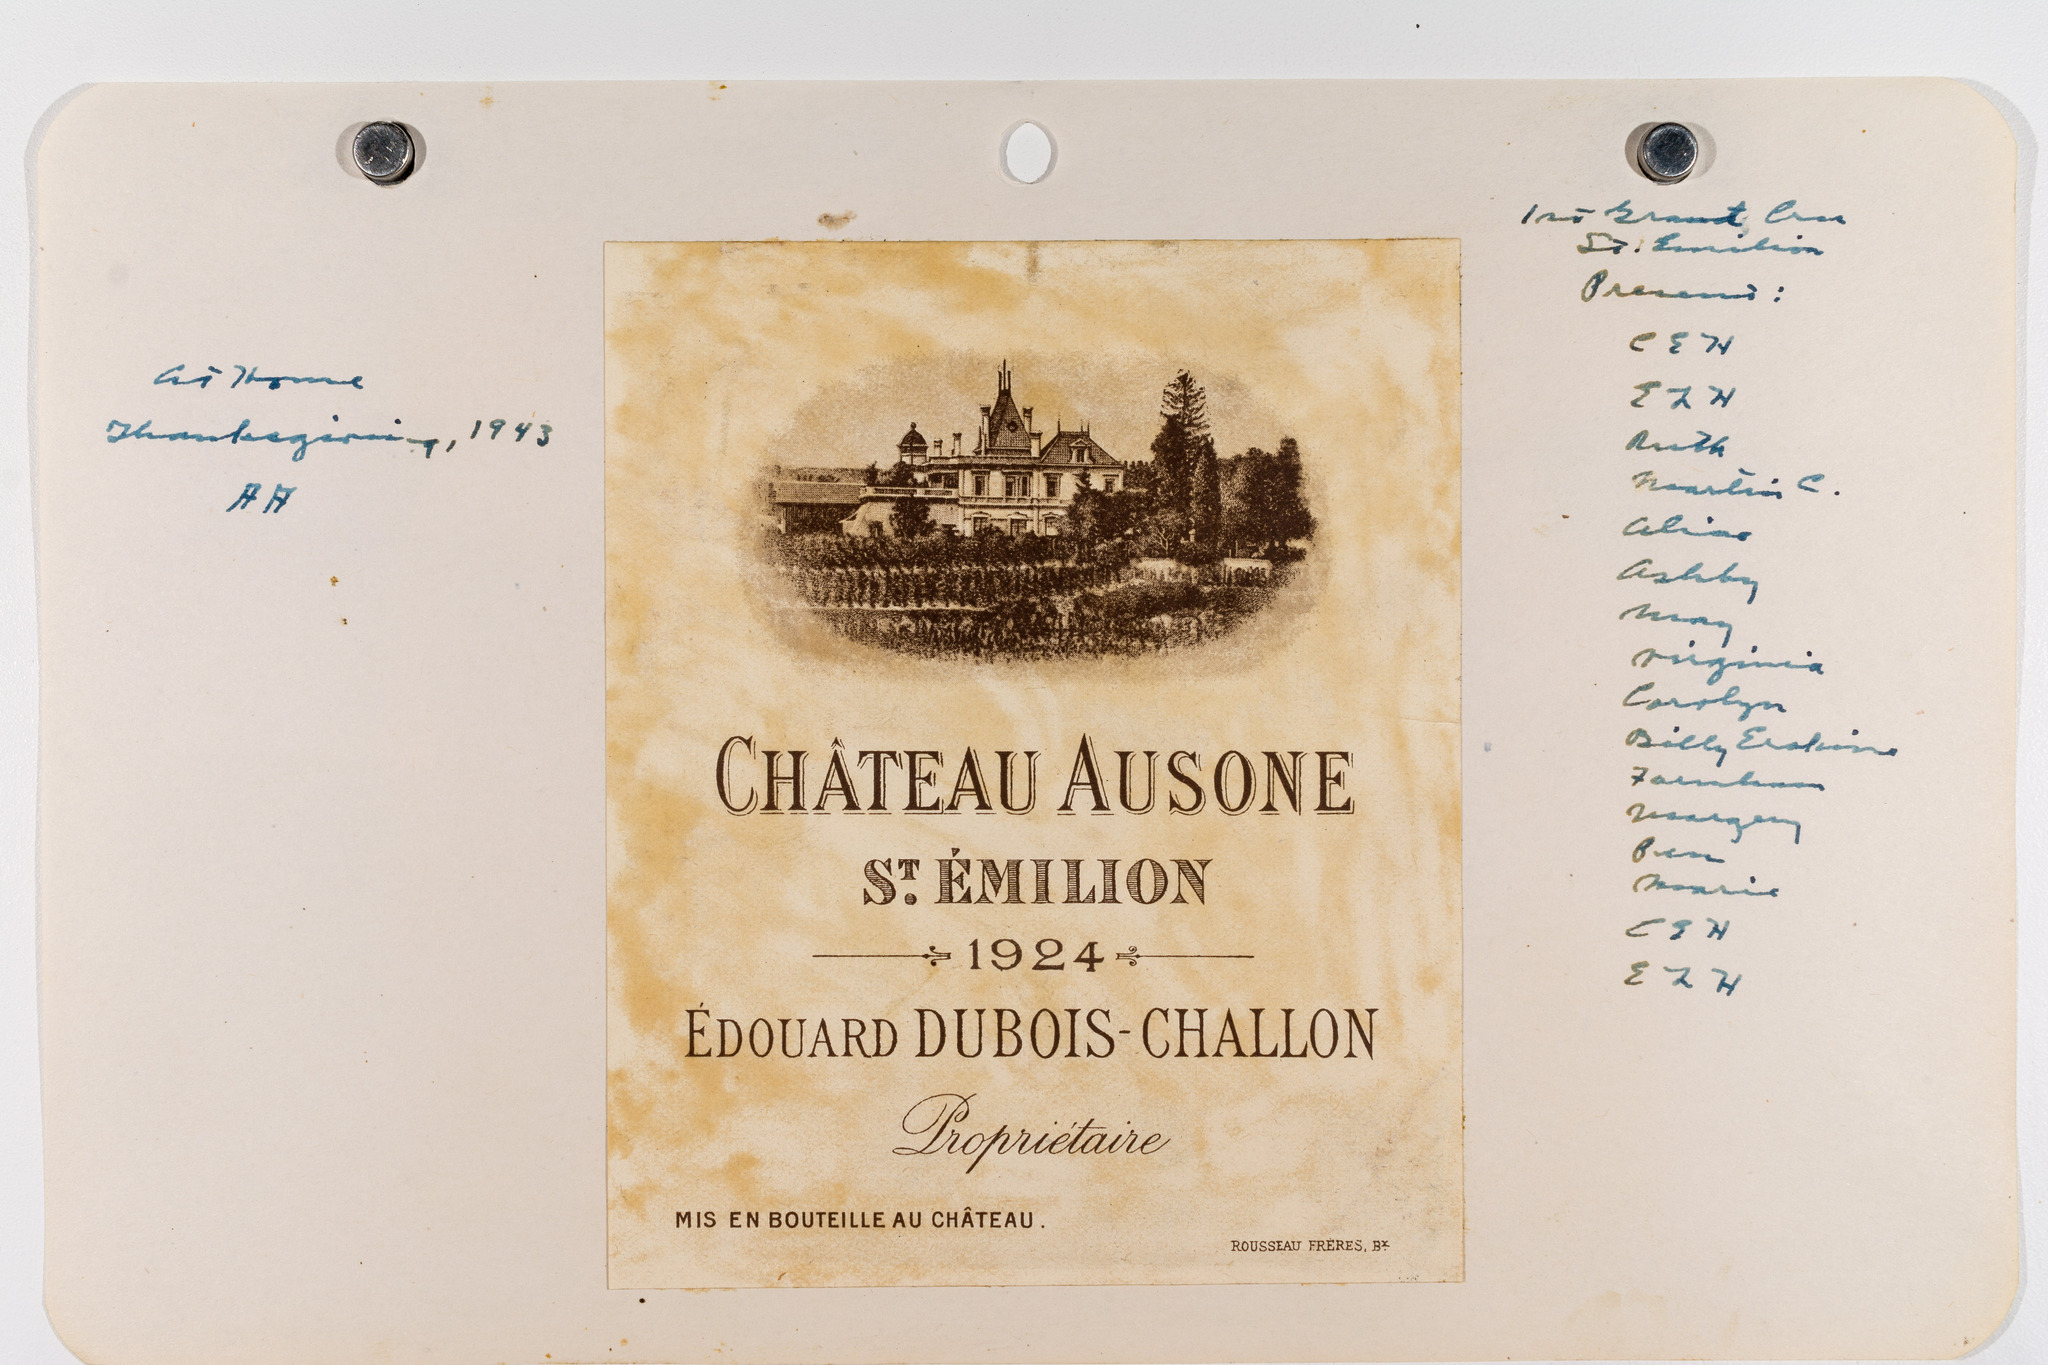 At Home
Thanksgiving, 1943
AA
CHÂTEAU AUSONE
ST. ÉMILION
1924
ÉDOUARD DUBOIS-CHALLON
Propriétaire
MIS EN BOUTEILLE AU CHÂTEAU.
ROUSSEAU FRÈRES, Bx
1st Grand Cru
St. Emilion
Present:
C E H
E L H
Ruth
Martin C.
Ashby
May
Virginia
Carolyn
Billy Erskine
Farnham
Margery
Pen
Marie
C E H
E L H